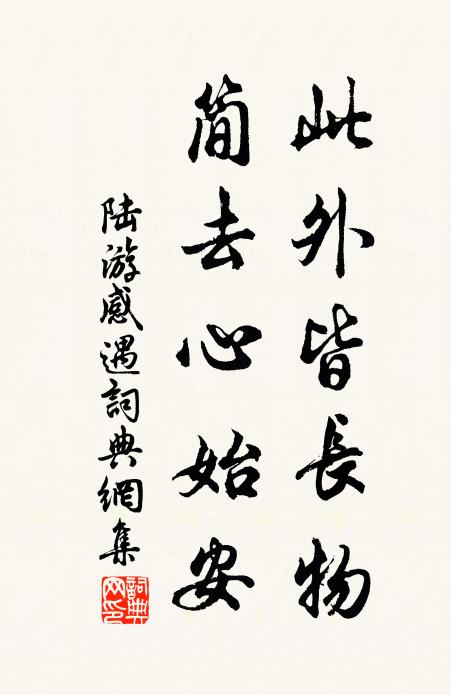 此外皆長物
简去心始安
陆游感遇詞典網集
詞典网印